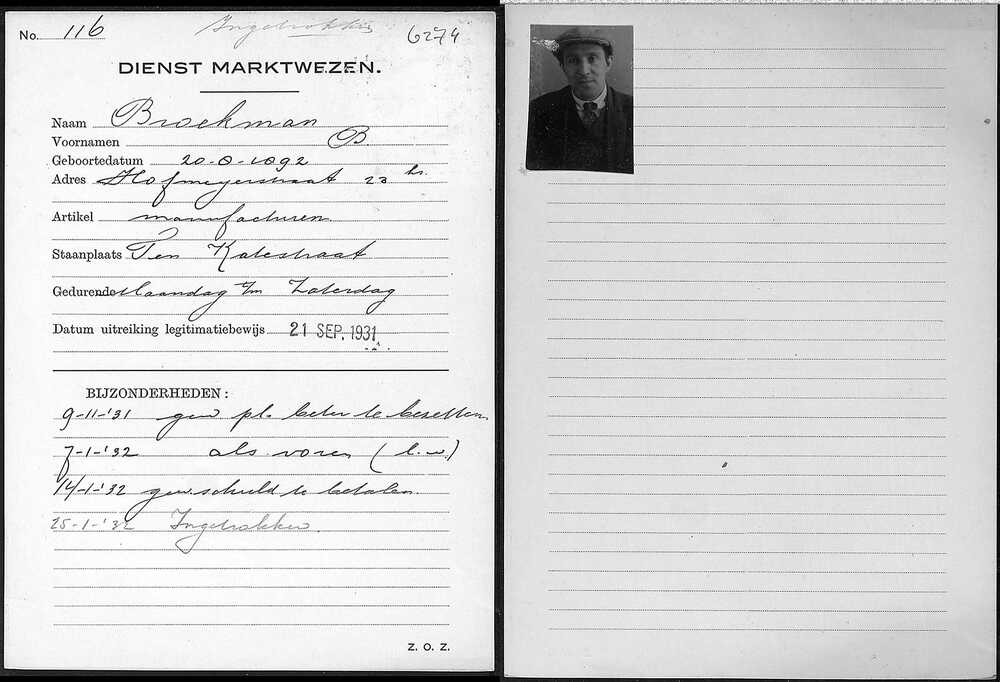 No. 116 Ingetrokken 6274
DIENST MARKTWEZEN.
Naam Broekman
Voornamen B.
Geboortedatum 20-8-1892
Adres Hofmeyerstraat 23 hs.
Artikel manufacturen
Staanplaats Ten Katestraat
Gedurende Maandag t/m Zaterdag
Datum uitreiking legitimatiebewijs 21 SEP. 1931
BIJZONDERHEDEN:
9-11-'31 gew pl. beter te bezetten
7-1-'32 als voren (l.w.)
14/1-'32 gew. schuld te betalen.
25-1-'32 Ingetrokken.
Z. O. Z.